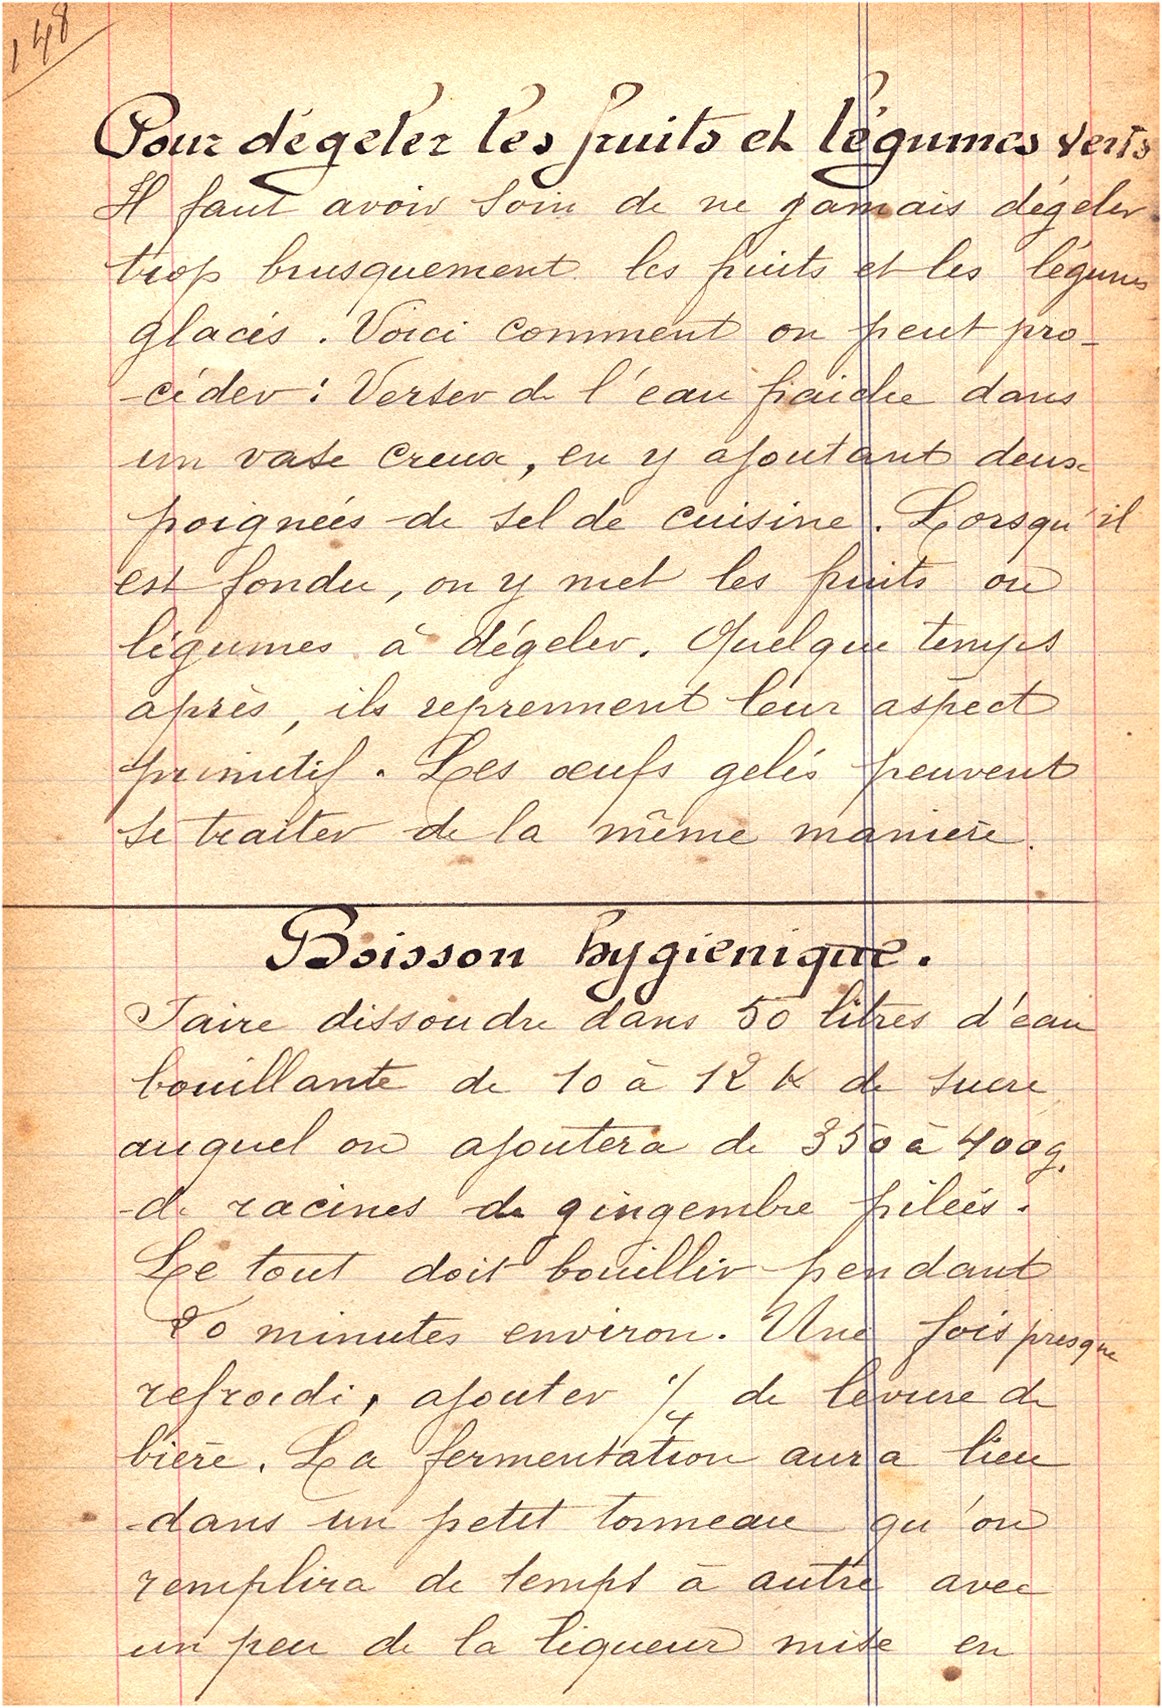 148
Pour dégeler les fruits et légumes verts
Il faut avoir soin de ne jamais dégeler
trop brusquement les fruits et les légumes
glacés. Voici comment on peut pro-
-céder : Verser de l'eau fraiche dans
un vase creux, en y ajoutant deux
poignées de sel de cuisine. Lorsqu'il
est fondu, on y met les fruits ou
légumes à dégeler. Quelque temps
après, ils reprennent leur aspect
primitif. Les œufs gelés peuvent
se traiter de la même manière.
Boisson hygiénique.
Faire dissoudre dans 50 litres d'eau
bouillante de 10 à 12 k de sucre
auquel on ajoutera de 350 à 400g.
de racines de gingembre pilées.
Le tout doit bouillir pendant
20 minutes environ. Une fois presque
refroidi, ajouter 1/4 de levure de
bière. La fermentation aura lieu
dans un petit tonneau qu'on
remplira de temps à autre avec
un peu de la liqueur mise en